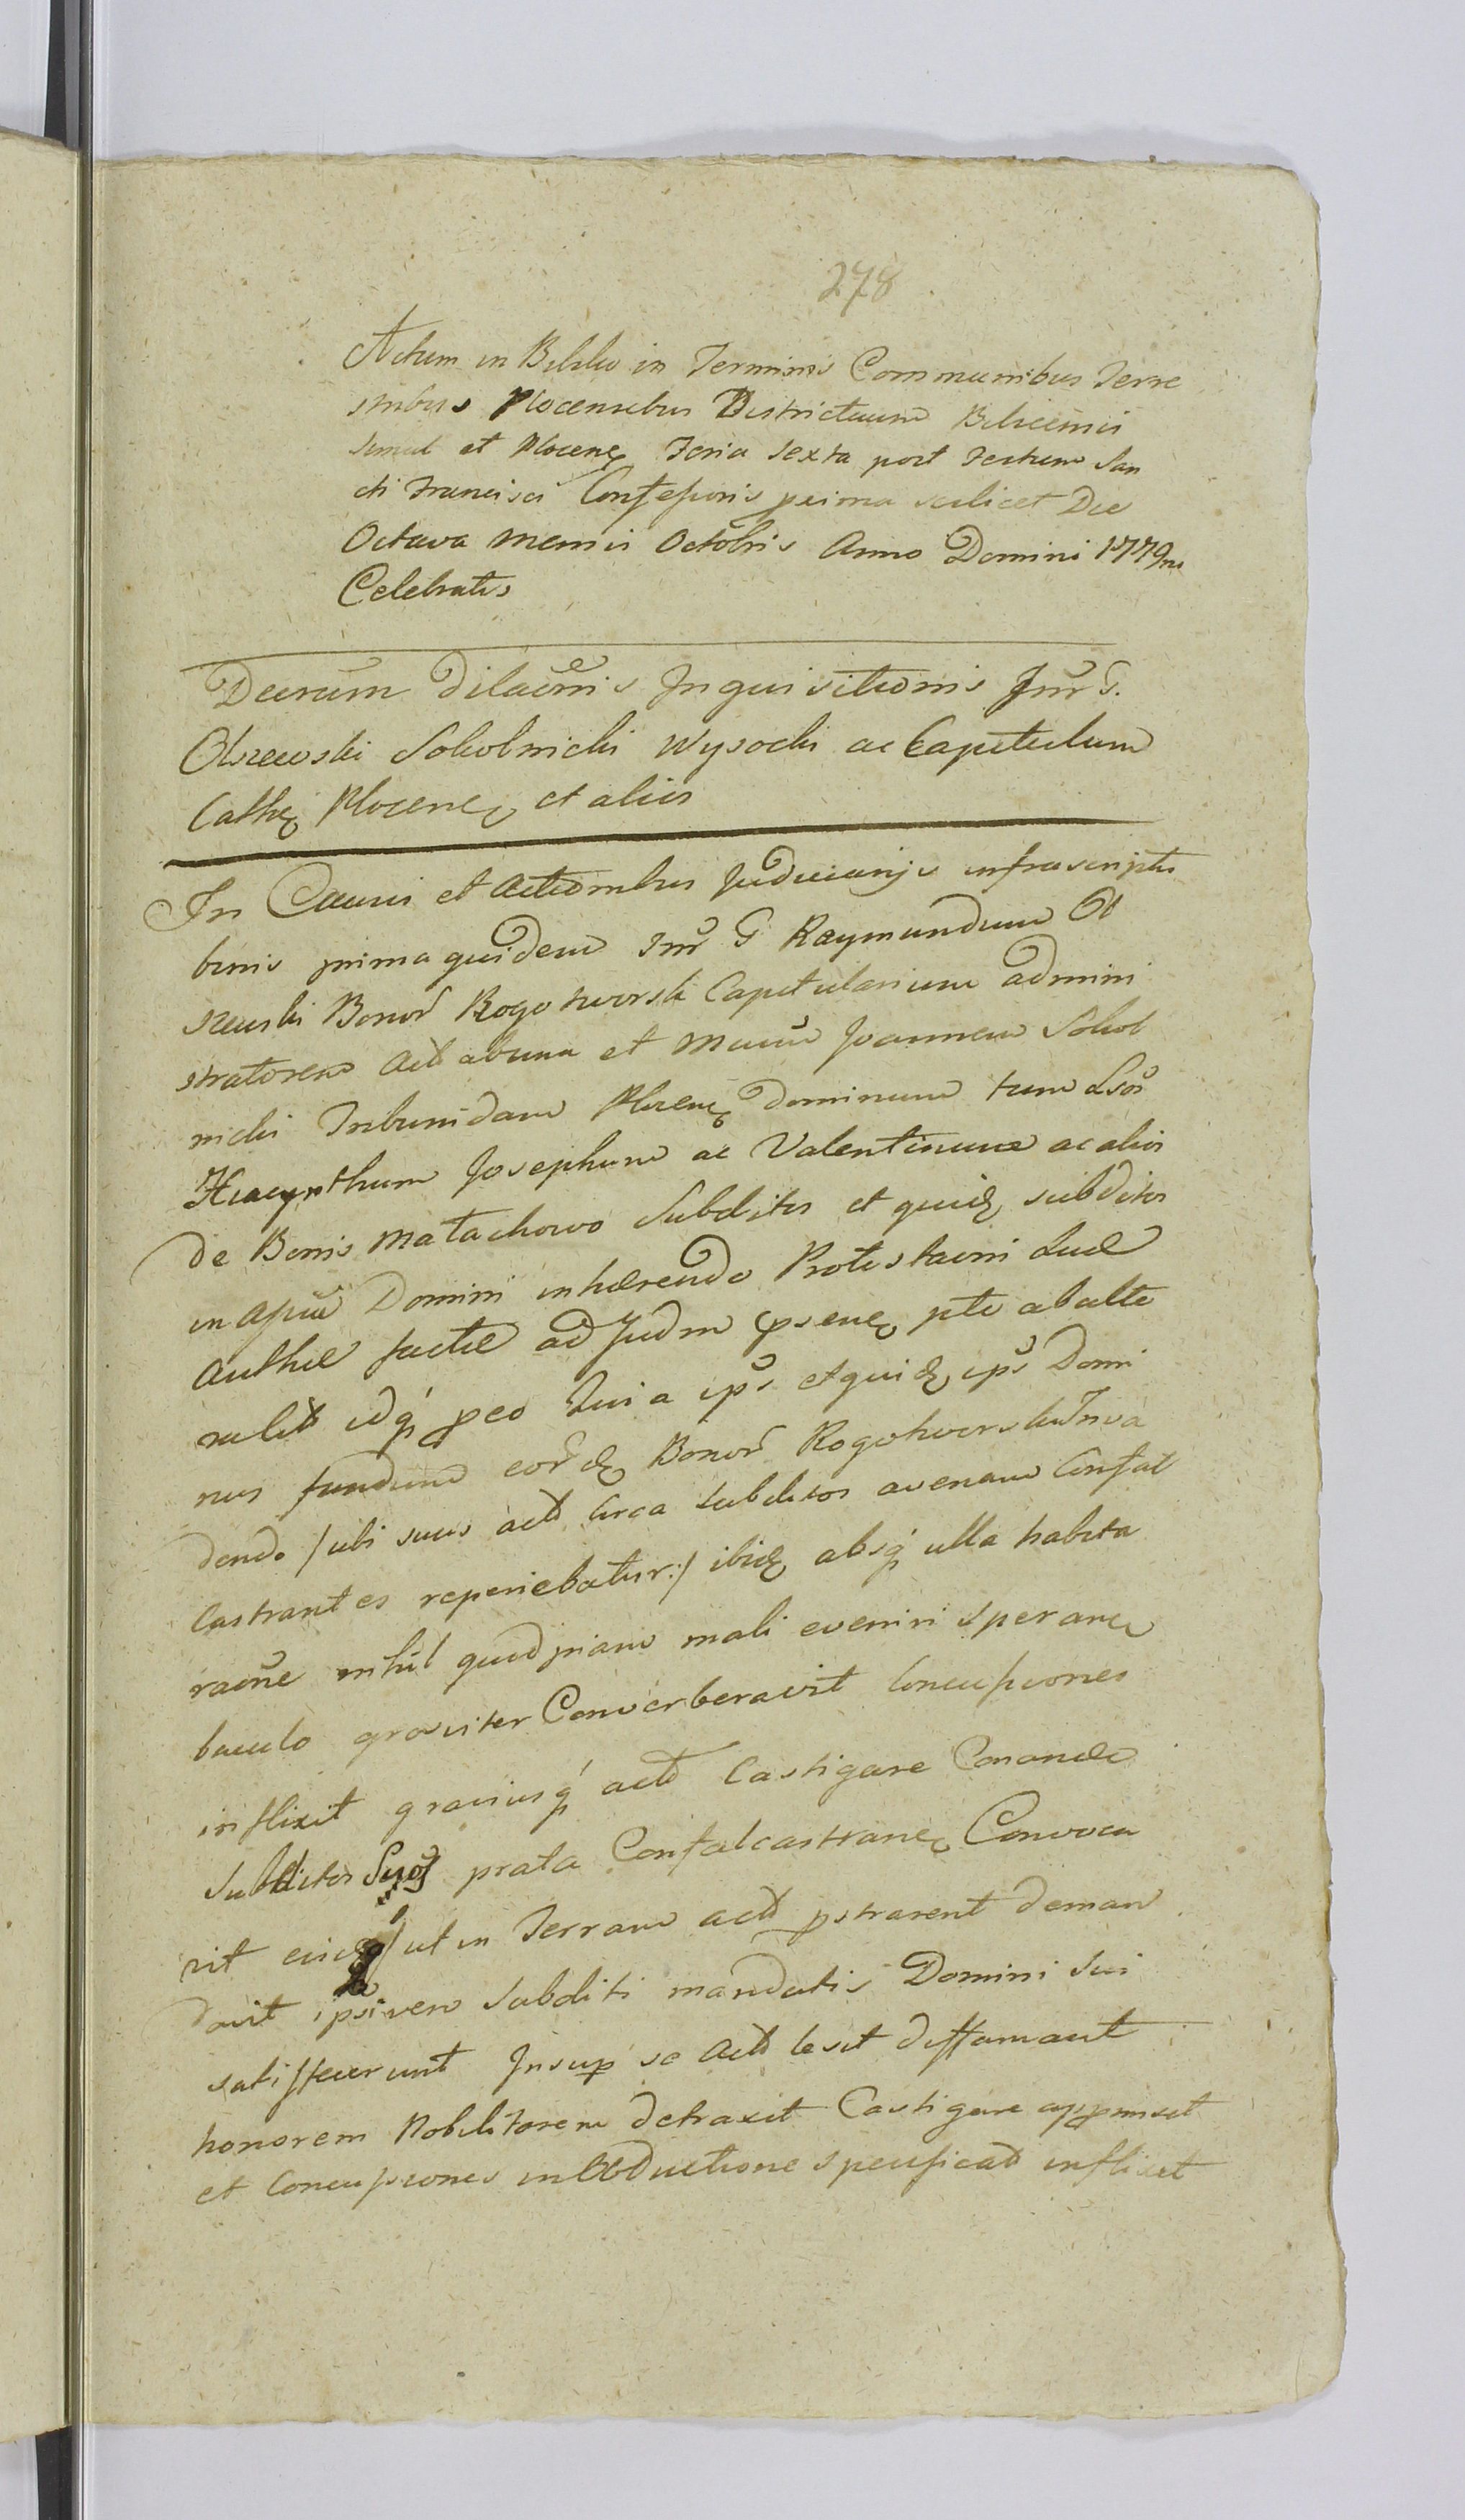 278
Actum in Bilsko in Terminis Communibus Terre
stribus Plocensibus Districtuum Bilscensis
simul et Plocen Feria Sexta post Festum San
cti Francisci Confessoris prima scilicet Die
Octava Mensis Octobris Anno Domini 1779no
Celebratis
Decretum Dilaōnis Inquisitionis Inr G.
Olszewski Sokolnicki Wysocki ac Capitulum
Cathe Plocen et alios
In Causis et Actionibus Judiciarijs infrascriptis
binis prima quidem Inr G Raymundum Ol
szewski Bonor Rogotworsk Capitularium admini
stratorem Act ab una et Mcum Joannem Sokol
nicki Tribunidam Plocen Dominum tum Lsos
Hiacynthum Josephum ac Valentinum ac alios
de Bonis Matachowo Subditos et quid subditos
in Domini inhærendo Protestaōni
Authæ factæ ad Judm psens pte ab alte
idq peo Quia ips et quid ips Domi
nus fundum eord Bonor Rogotworsk Inva
dendo / ubi suus act circa subditos avenam Confal
castrantes reperiebatur:/ ibid absq ulla habita
raōne nihil quodpiam mali eveniri speran
baculo graviter Converberavit Concussiones
inflixit graviusq act Castigare Conando
Subditos Suos prata Confalcastran Convoca
vit eisd ut in Terram act pstrarent deman
davit ipsi vero Subditi mandatis Domini Sui
satisfecerunt Insup se Act lesit diffamavit
honorem Nobilitorem detraxit Castigare appromisit
et Concussiones in Obductione specificat inflixit